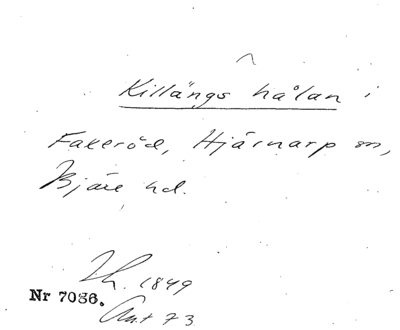 Killängs hålan i
Fakeröd, Hjärnarp sn,
Bjäre hd.
Th. 1849
Nr 7086.
Ant 73